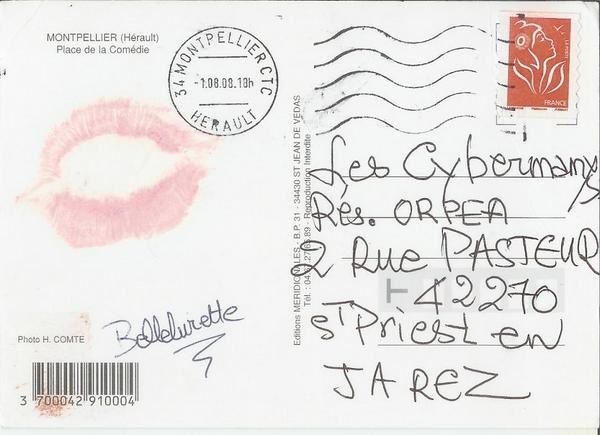 MONTPELLIER (Hérault)
Place de la Comédie
34 MONTPELLIER CTC
-1.08.08.18h
HERAULT
LA POSTE
FRANCE
Les Cybermamys
Rés. ORPEA
2 Rue PASTEUR
42270
St Priest en
JAREZ
Editions MERIDIONALES - B.P. 31 - 34430 ST JEAN DE VEDAS
Reproduction Interdite
Belledurette
Photo H. COMTE
3 700042 910004